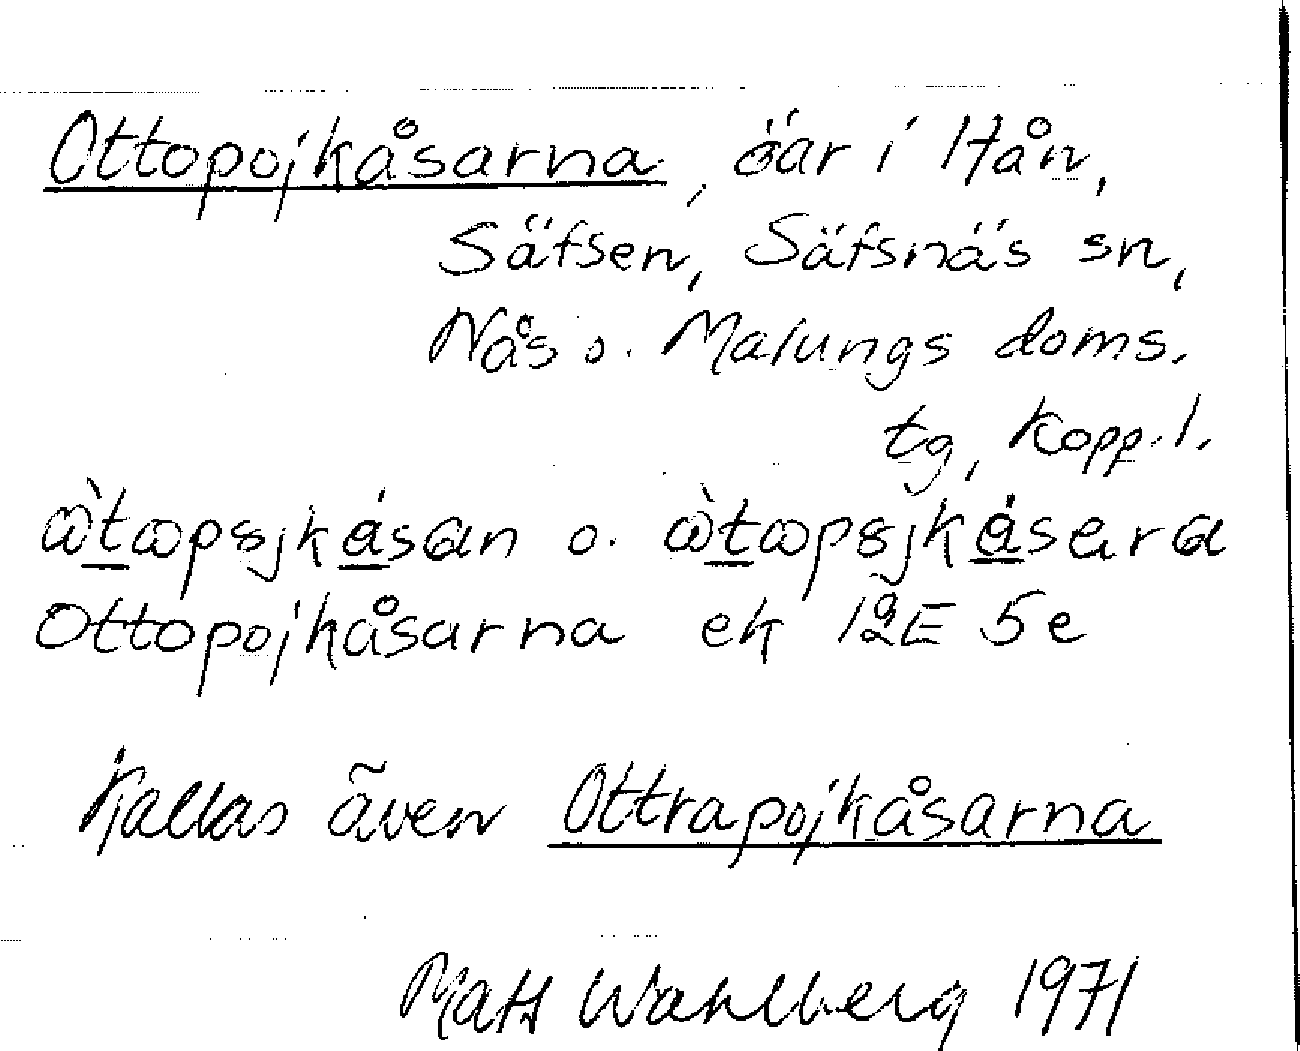 Ottopojkåsarna, öar i Hån,
Säfsen, Säfsnäs sn,
Nås o. Malungs doms.
tg, Kopp. l.
ὼtωpꞩjkásan o. ὼtωpꞩjkásara
Ottopojkåsarna ek 12E 5e
Kallas även Ottrapojkåsarna
Mats Wahlberg 1971